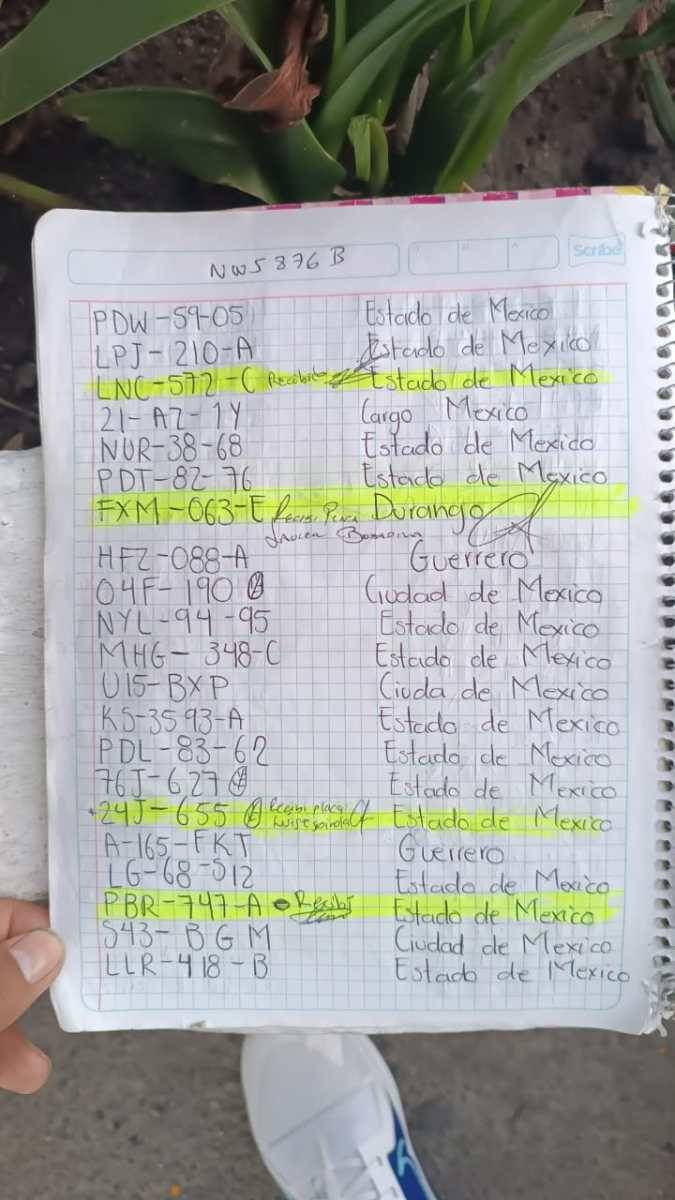 NW5876B
Scribe
PDW-59-05 Estado de Mexico
LPJ-210-A Estado de Mexico
LNC-572-C Recobido Estado de Mexico
21-AZ-1Y Cargo Mexico
NUR-38-68 Estado de Mexico
PDT-82-76 Estado de Mexico
FXM-063-E Durango
HFZ-088-A Guerrero
04F-190 Ciudad de Mexico
NYL-94-95 Estado de Mexico
MHG-348-C Estado de Mexico
U15-BXP Ciuda de Mexico
KS-3593-A Estado de Mexico
PDL-83-62 Estado de Mexico
76J-627 Estado de Mexico
24J-655 Recibi placa Estado de Mexico
A-165-FKT Guerrero
LG-68-512 Estado de Mexico
PBR-747-A Recibi Estado de Mexico
S43-BGM Ciudad de Mexico
LLR-418-B Estado de Mexico